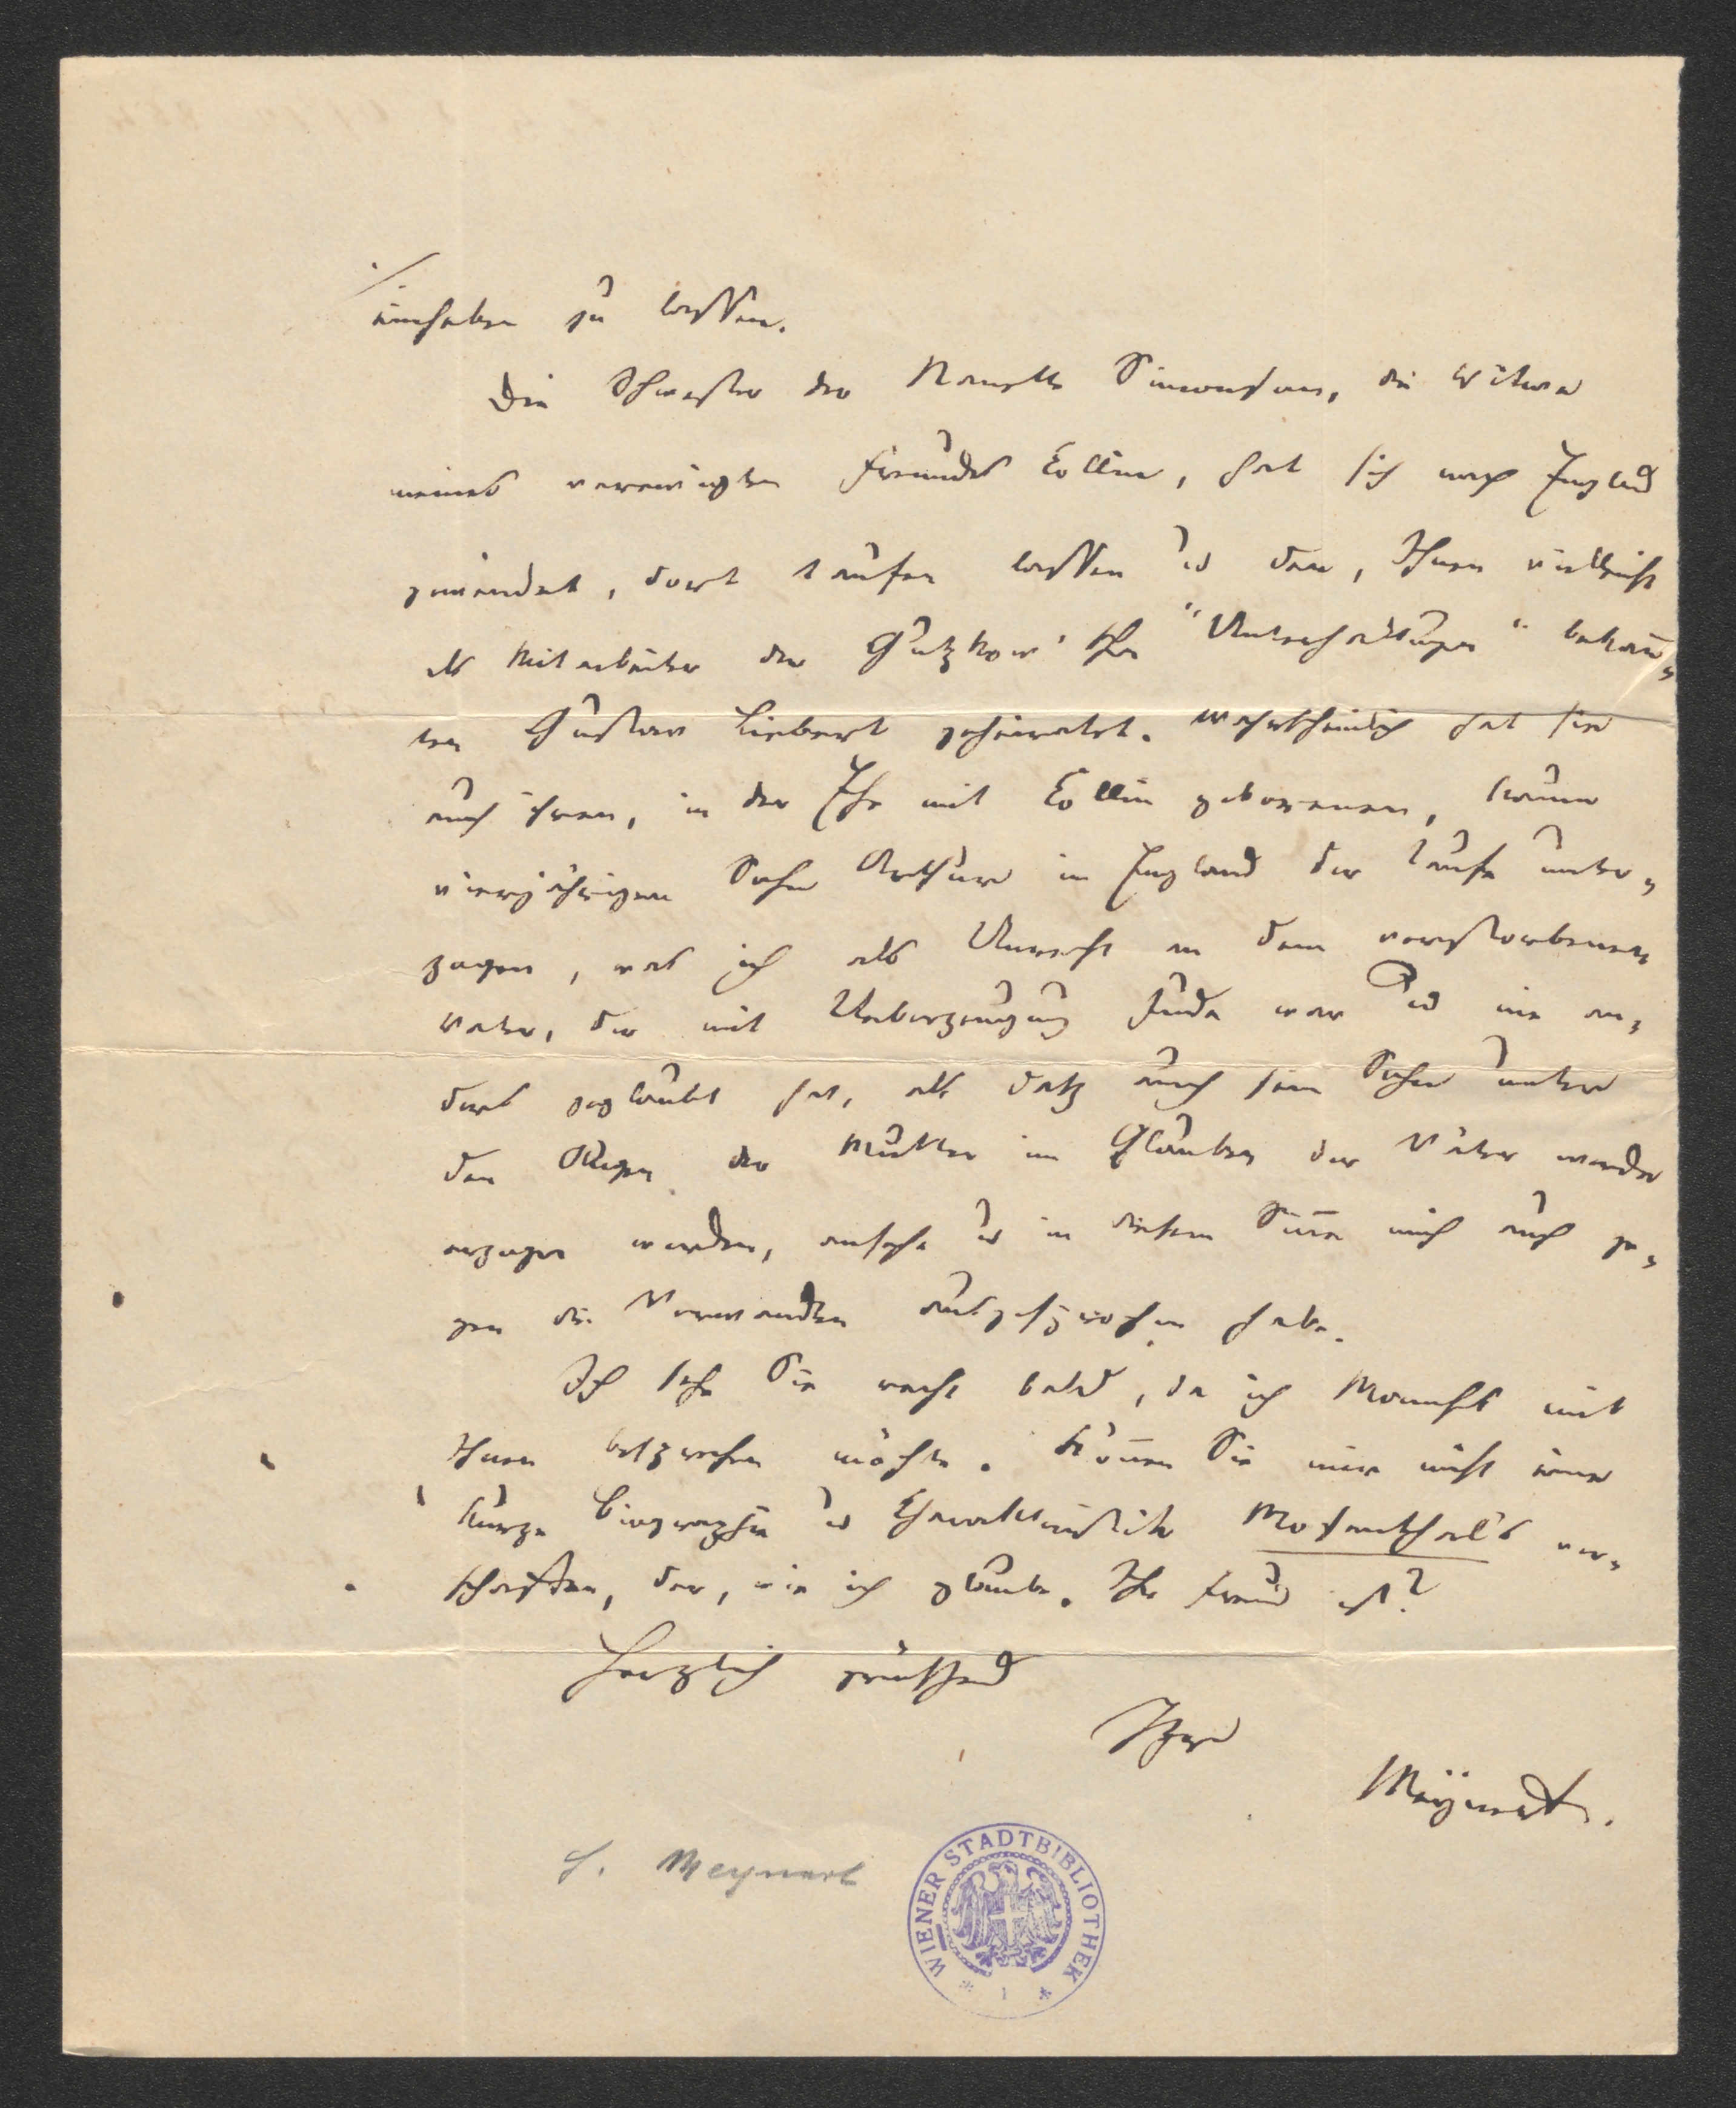 einheben zu lassen.
Die Schwester der Nanette Simonson, die Witwe
meines verewigten Freundes Collin, hat sich nach England
gewendet, dort taufen lassen u d den, Ihnen vielleicht
als Mitarbeiter der Gutzkow'schen "Unterhaltungen" bekan̅-
ten Gustav Liebert geheiratet. Wahrscheinlich hat sie
auch ihren, in der Ehe mit Collin geborenen, kaum
vierjährigen Sohn Arthur in England der Taufe unter-
zogen, was ich als Unrecht an dem verstorbenen
Vater, der mit Ueberzeugung Jude war u d nie an-
ders geglaubt hat, als daß auch sein Sohn unter
den Augen der Mutter im Glauben der Väter werde
erzogen werden, ansehe u d in diesem Sin̅e mich auch ge-
gen die Verwandten ausgesprochen habe.
Ich sehe Sie recht bald, da ich Manches mit
Ihnen besprechen möchte. Kön̅en Sie mir nicht eine
kurze Biographie u d Charakteristik Mosenthal's ver-
schaffen, der, wie ich glaube, Ihr Freund ist?
Herzlich grüßend
Ihr
Meÿnert.
H. Meynert
WIENER STADTBIBLIOTHEK